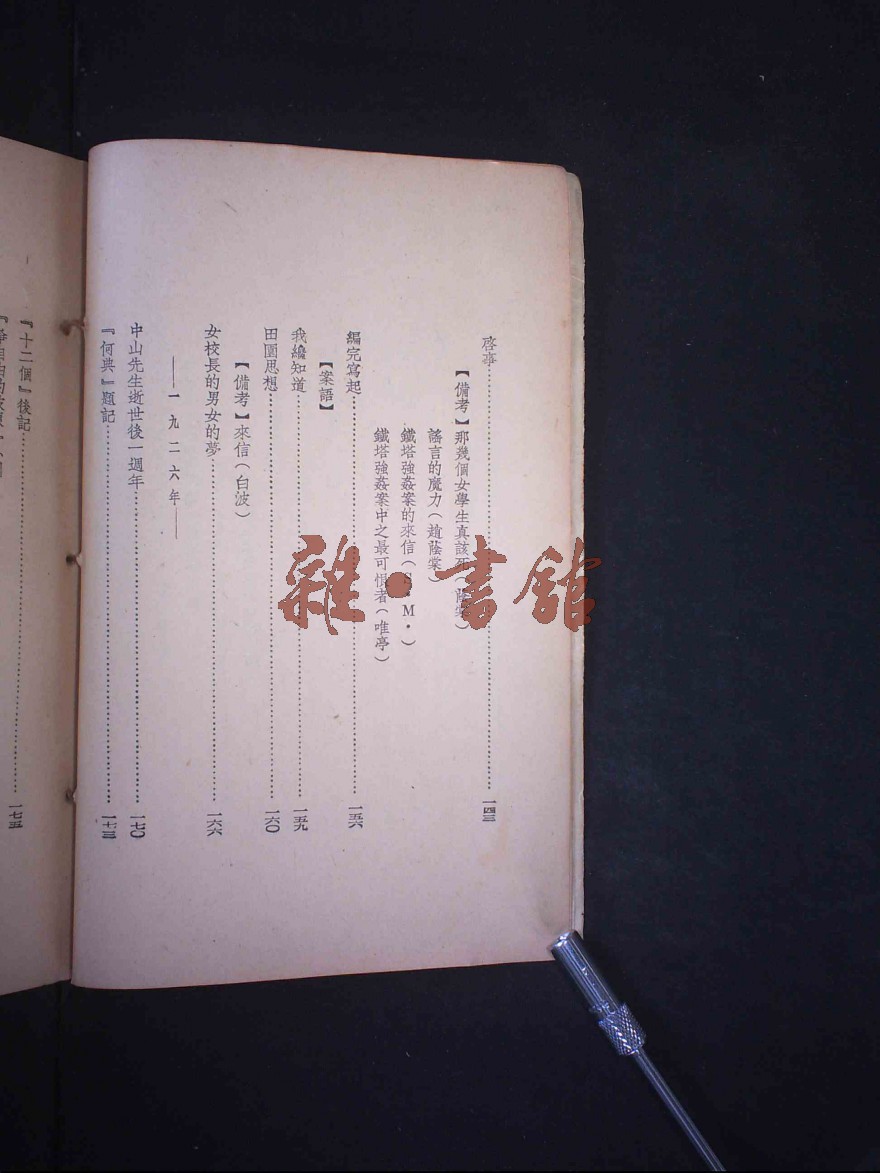 啓事……一四三
【備考】那幾個女學生真該死（蔭棠）
謠言的魔力（趙蔭棠）
鐵塔強姦案的來信（S·M·）
鐵塔強姦案中之最可恨者（唯亭）
編完寫起……一五六
【案語】
我纔知道……一五九
田園思想……一六〇
【備考】來信（白波）
女校長的男女的夢……一六六
——一九二六年——
中山先生逝世後一週年……一七〇
『何典』題記……一七三
『十二個』後記……一七五
雜·書館